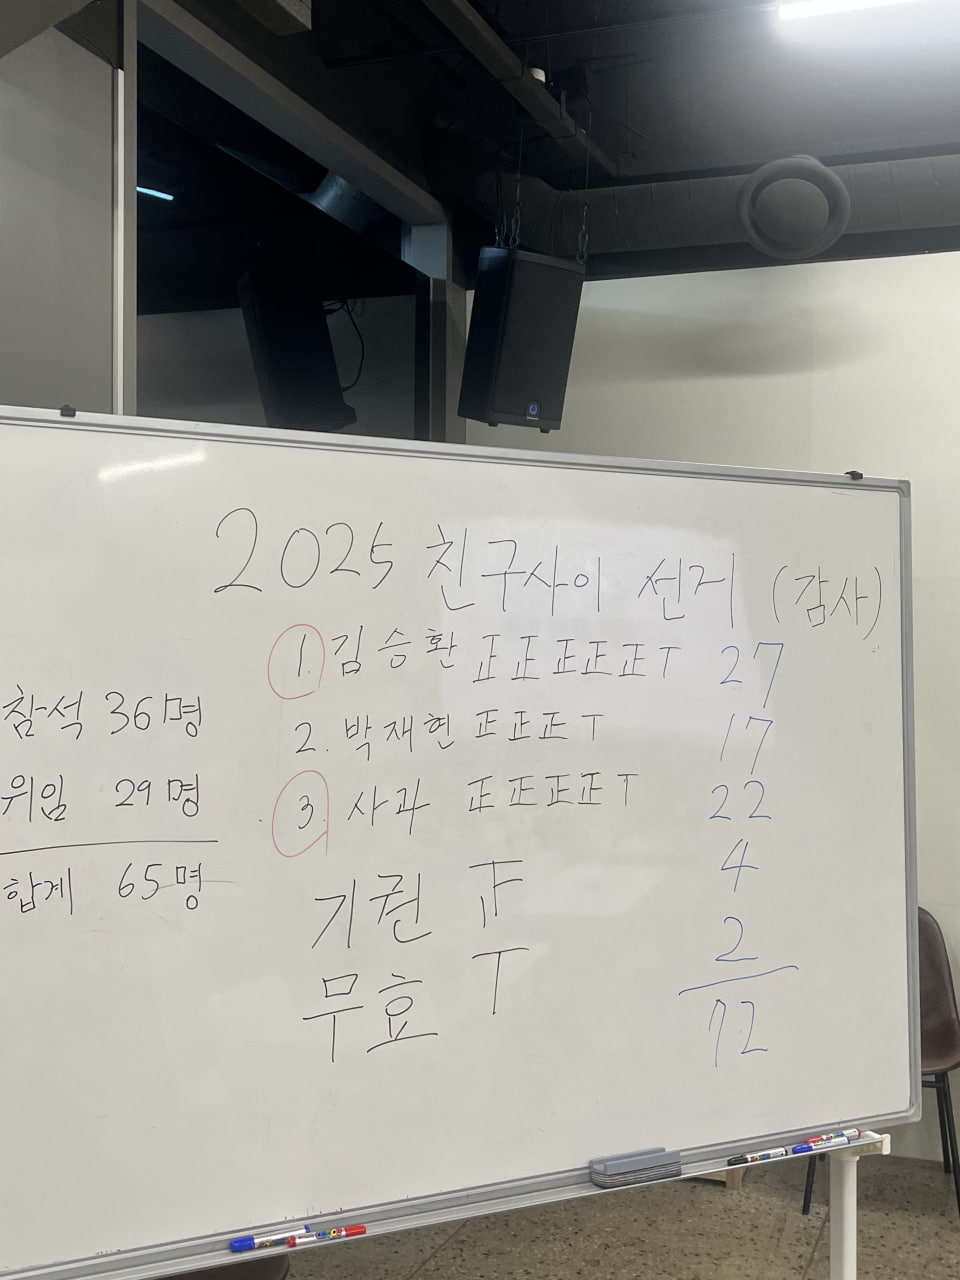 2025 친구사이 선거 (감사)
1. 김승환 正正正正正丅 27
2. 박재현 正正正丅 17
3. 사과 正正正正丅 22
기권 𝍵 4
무효 丅 2
72
참석 36명
위임 29명
합계 65명